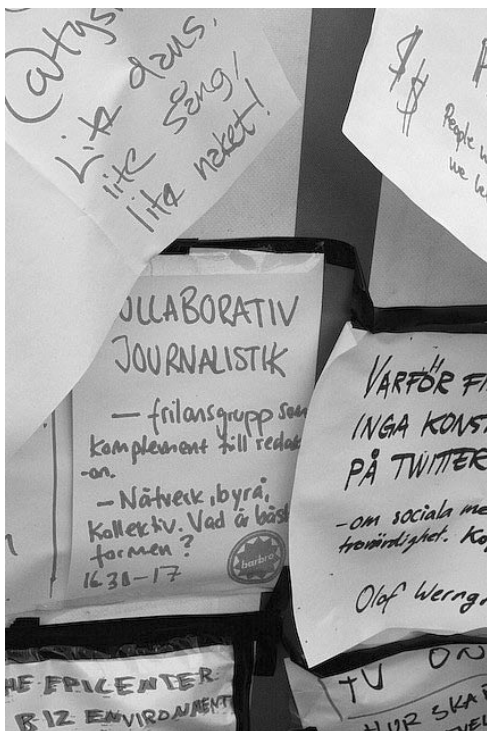 Lite dans,
lite sång,
lite naket!
$
$
People
we
OLLABORATIV
JOURNALISTIK
— frilansgrupp som
komplement till redak
-on.
— Nätverk, byrå,
kollektiv. Vad är bäst
formen?
1630–17
barbro
VARFÖR
INGA KONST
PÅ TWITTER
-om sociala me
trovärdighet.
Olof
HE EPICENTER
BIZ ENVIRONMENT
TV ON
HUR SKA